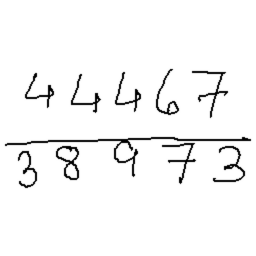 44467
38973